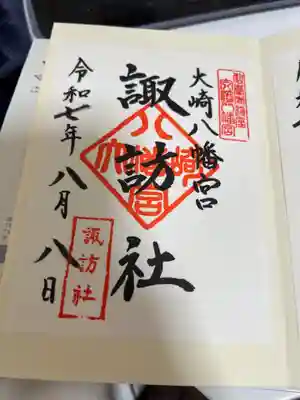 大崎八幡宮
諏訪社
令和七年八月八日
大崎八幡宮
諏訪社